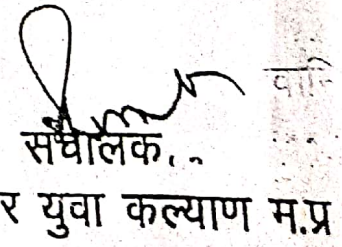 संचालक,
र युवा कल्याण म.प्र